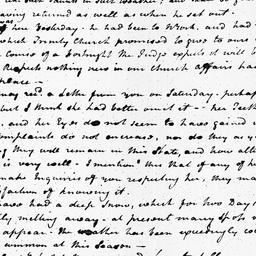 having returned as well as when he set out.
of her Yesterday. he had been to Work. and had
which Trinity Church promised to give to ours
course of a Fortnight the Judge expects it will b
Respects nothing new in our Church affairs has
place —
may rec.d a letter from you on Saturday. perhaps
but I think she had better omit it — her Teeth
and her Eyes do not seem to have gained
complaints do not encrease, nor do they as y
they will remain in this State, and how all
is very well — I mention this that if any of her
make Inquiries of you respecting her, they may
sfaction of knowing it.
have had a deep Snow, which for two Days
melting away. at present many Spots
appear. the weather has been exceedingly co
common at this Season —